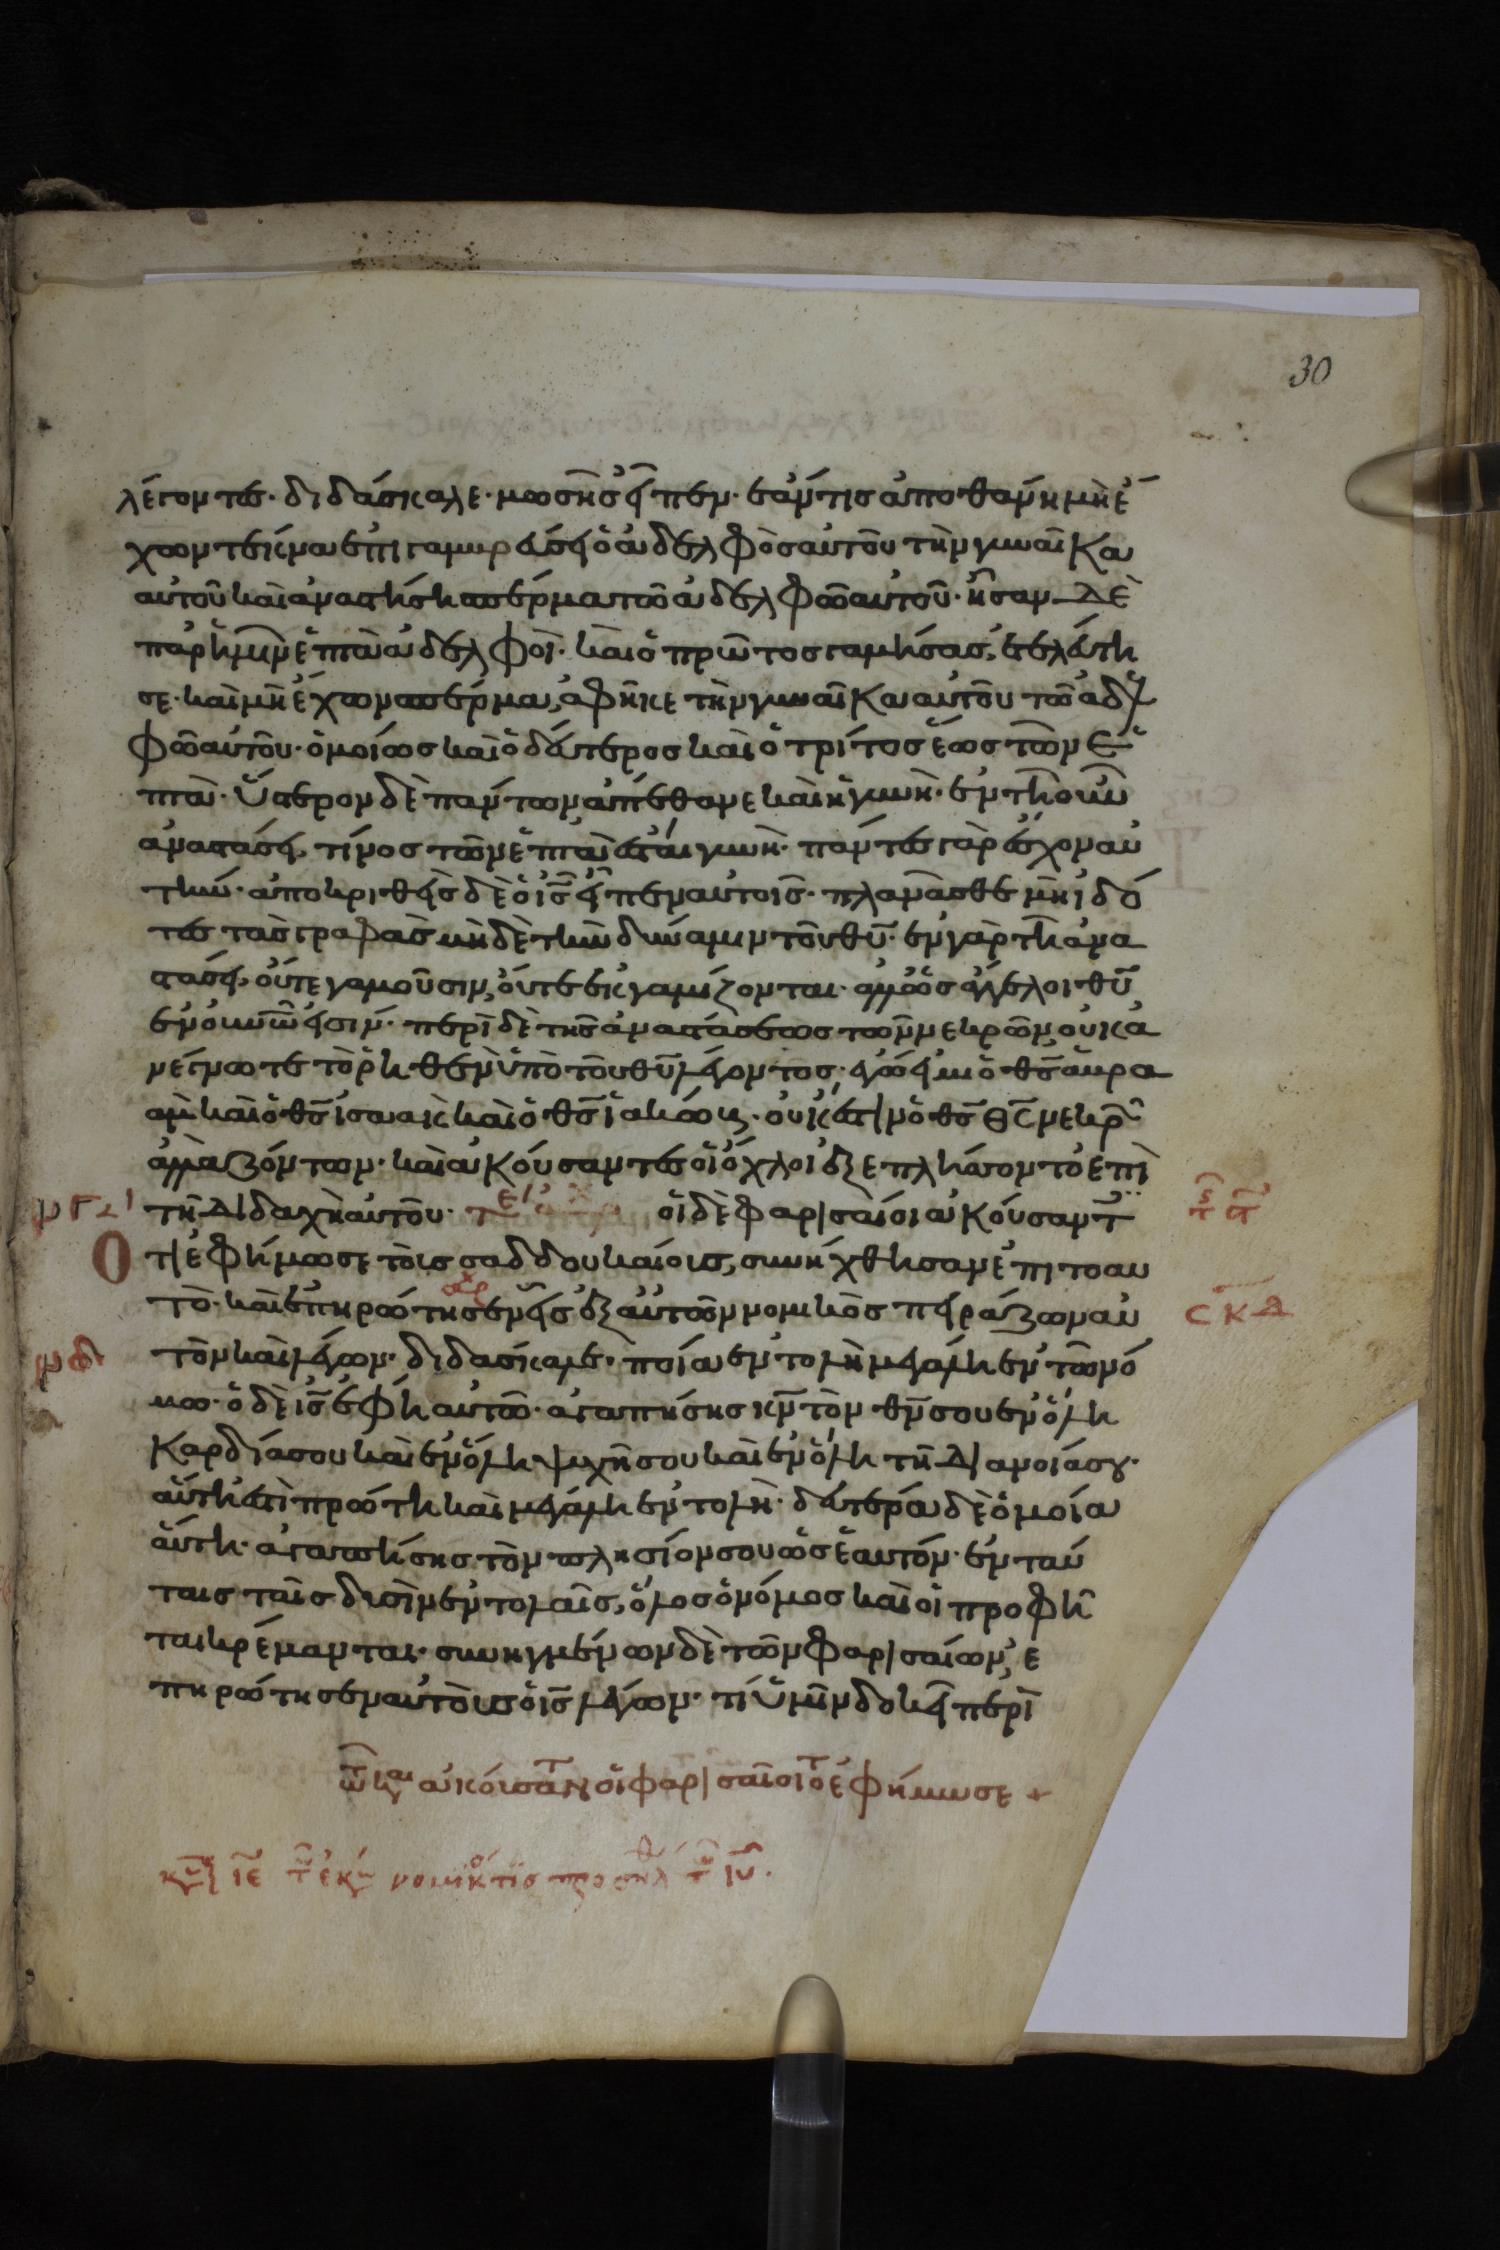 30
λέγοντες· διδάσκαλε· μωσῆς εἶπεν· ἐάν τις ἀποθάνη μὴ ἔ
χων τέκνα ἐπιγαμβρεύσει ὁ ἀδελφὸς αὐτοῦ τὴν γυναῖκα
αὐτοῦ καὶ ἀναστήση σπέρμα τῶ ἀδελφῶ αὐτοῦ· ἦσαν δὲ
παρ ἡμῖν ἑπτὰ ἀδελφοὶ· καὶ ὁ πρῶτος γαμήσας, ἐτελεύτη
σε· καὶ μὴ ἔχων σπέρμα, ἀφῆκε τὴν γυναῖκα αὐτοῦ τῶ ἀδελ
φῶ αὐτοῦ· ὁμοίως καὶ ὁ δεύτερος καὶ ὁ τρίτος ἕως τῶν ἑ
πτὰ· ὕστερον δὲ πάντων ἀπέθανε καὶ ἡ γυνὴ· ἐν τῆ οὖν
ἀναστάσει, τίνος τῶν ἑπτὰ ἔσται γυνὴ· πάντες γὰρ ἔσχον αὐ
τὴν· ἀποκριθεὶς δὲ ὁ ι̅ς̅ εἶπεν αὐτοῖς· πλανᾶσθε μὴ ἰδό
τες τὰς γραφὰς μὴδὲ τὴν δύναμιν τοῦ θ̅υ̅· ἐν γὰρ τῆ ἀνα
στάσει, οὔτε γαμοῦσιν, οὔτε ἐκγαμίζονται· ἀλλ ὡς ἄγγελοι θ̅υ̅
ἐν οὐν̅ω̅ εἰσίν· περὶ δὲ τῆς ἀναστάσεως τῶν νεκρῶν, οὐκ ἀ
νέγνωτε τὸ ῥηθὲν ὑπὸ τοῦ θ̅υ̅ λέγοντος· ἐγώ εἰμι ὁ θ̅ς̅ ἀβρα
ὰμ καὶ ὁ θ̅ς̅ ἰσαὰκ καὶ ὁ θ̅ς̅ ἰακώβ· οὐκ ἔστιν ὁ θ̅ς̅ θ̅ς̅ νεκρῶν
ἀλλὰ ζώντων· καὶ ἀκούσαντες οἱ ὄχλοι ἐξεπλήσσοντο ἐπὶ
τῆ διδαχῆ αὐτοῦ· οἱ δὲ φαρισαίοι ἀκούσαντ
Ὁτι ἐφήμωσε τοὺς σαδδουκαίους, συνήχθησαν ἐπιτοαυ
τὸ· καὶ ἐπηρώτησεν εἷς ἐξ αὐτῶν νομικὸς πειράζων αὐ
τὸν καὶ λέγων· διδάσκαλε· ποία ἐντολὴ μεγάλη ἐν τῶ νό
μω· ὁ δὲ ι̅ς̅ ἔφη αὐτῶ· ἀγαπήσης κ̅ν̅ τὸν θ̅ν̅ σου ἐν ὅλη
καρδία σου καὶ ἐν ὅλη ψυχῆ σου καὶ ἐν ὅλη τῆ διανοία σου·
αὕτη ἐστὶ πρώτη καὶ μεγάλη ἐντολὴ· δευτέρα δὲ ὁμοία
αὕτη· ἀγαπήσης τὸν πλησίον σου ὡς ἑαυτόν· ἐν ταύ
ταις ταῖς δυσὶν ἐντολαῖς, ὅλος ὁ νόμος καὶ οἱ προφῆ
ται κρέμανται· συνηγμένων δὲ τῶν φαρισαίων, ἐ
πηρώτησεν αὐτοὺς ὁ ι̅ς̅ λέγων· τί ὑμῖν δοκεῖ περὶ
ἀκούσαντ οἱ φαρισαῖοι ὅτ ἐφήμωσε +
ιε νομικός τις προσῆλθ τῶ ι̅υ̅·
σκδ